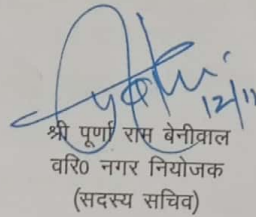 12/11
श्री पूर्णा राम बेनीवाल
वरि0 नगर नियोजक
(सदस्य सचिव)